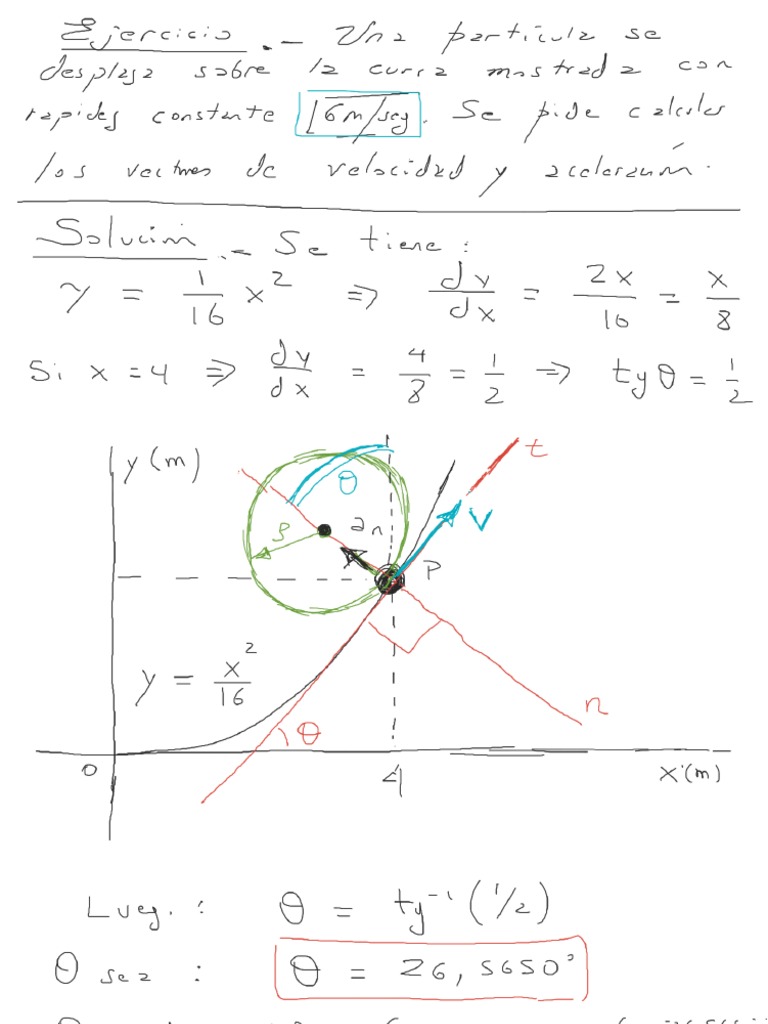 Ejercicio.- Una partícula se
desplaza sobre la curva mostrada con
rapidez constante 16m/seg. Se pide calcular
los vectores de velocidad y aceleración.
Solución.- Se tiene:
y = 1/16 x² ⇒ dy/dx = 2x/16 = x/8
Si x = 4 ⇒ dy/dx = 4/8 = 1/2 ⇒ tgθ = 1/2
y(m)
t
θ
an
ρ
V
P
y = x²/16
n
θ
0
4
x(m)
Lueg.: θ = tg⁻¹(1/2)
O sea: θ = 26,5650°